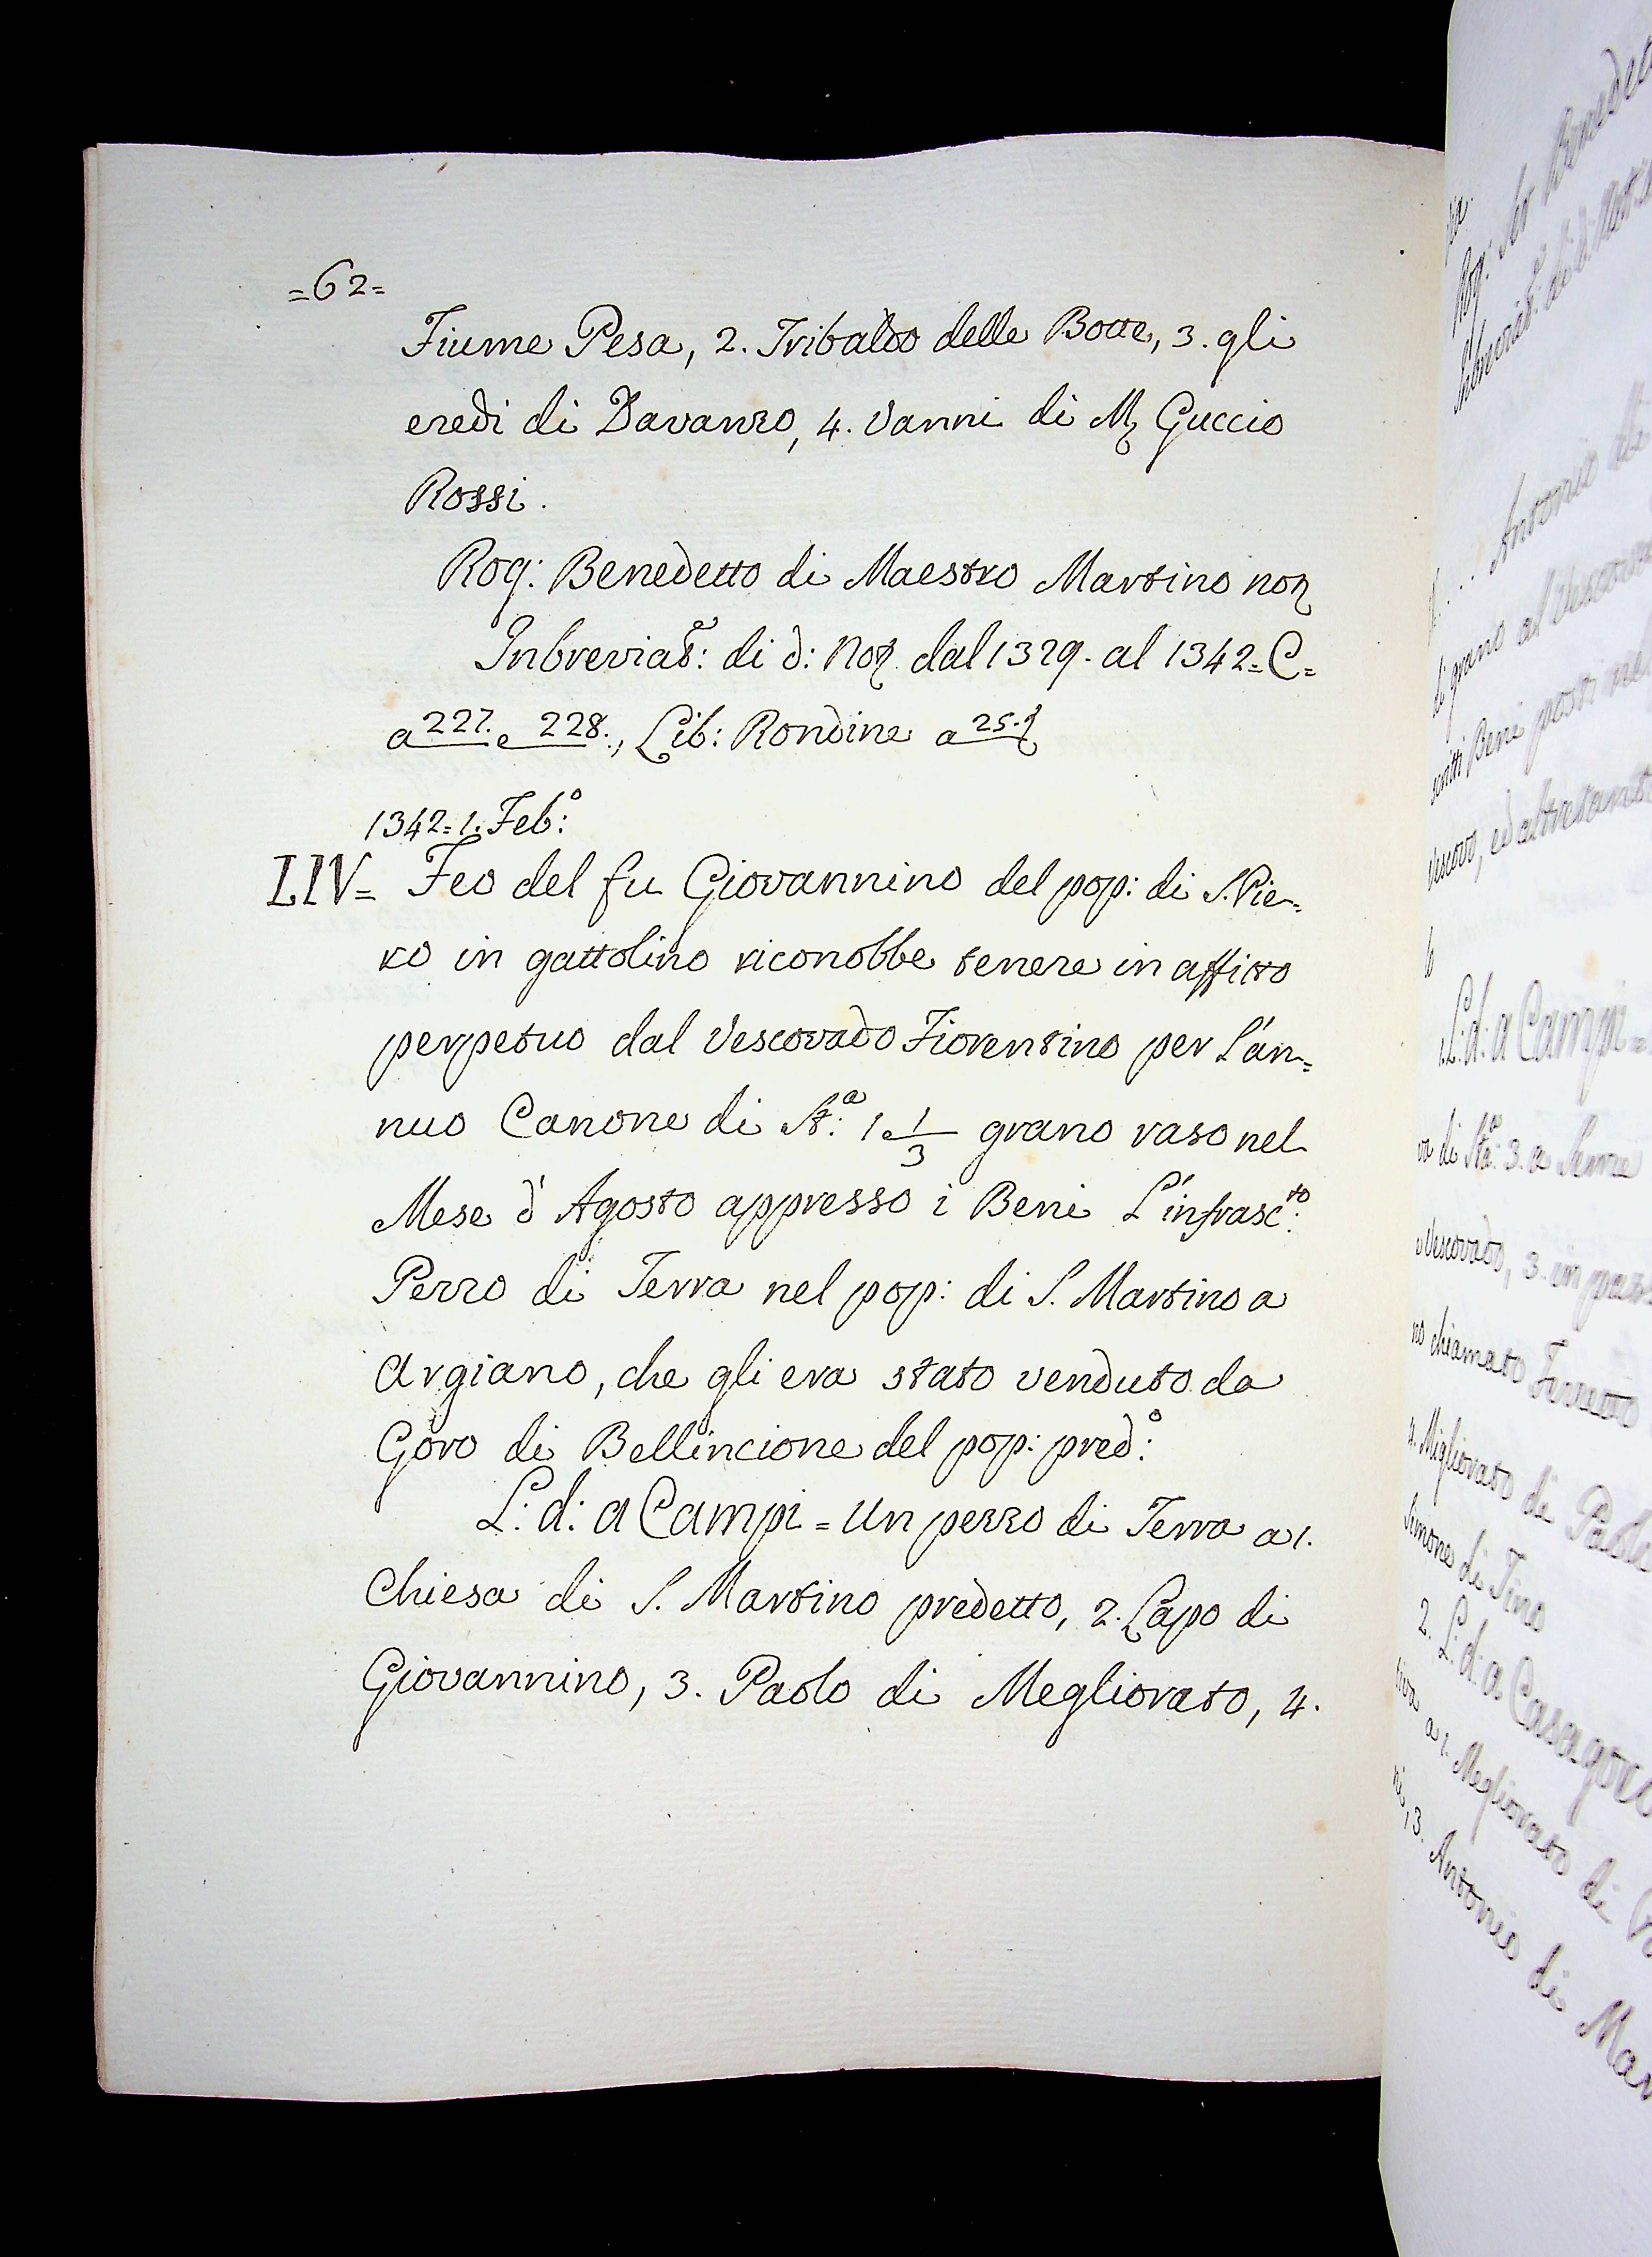 =62=
Fiume Pesa, 2. Tribaldo delle Botte, 3. gli
eredi di Davanzo, 4. Vanni di M Guccio
Rossi.
Rog: Benedetto di Maestro Martino not
Inbreviat:e di d: Not. dal 1329. al 1342= C=
a 227. e 228., Lib: Rondine a 25.
1342= 1. Feb:o
LIV= Feo del fu Giovannino del pop: di S. Pie=
ro in gattolino riconobbe tenere in affitto
perpetuo dal Vescovado Fiorentino per l'an=
nuo Canone di St:a 1 1/3 grano raso nel
Mese d'Agosto appresso i Beni L'infrasc:to
Pezzo di Terra nel pop: di S. Martino a
Argiano, che gli era stato venduto da
Goro di Bellincione del pop: pred:o
L: d: a Campi = Un pezzo di Terra a 1.
Chiesa di S. Martino predetto, 2. Lapo di
Giovannino, 3. Paolo di Megliorato, 4.
Rog: Ser Benedet
Antonio di
di grano al Vescova
scritti Beni posti nel
Vescovo, ed altretanto
L: d: a Campi =
va di Sta:a 3. a Seme
Vescovado, 3. in par
no chiamato
4. Migliorato di Paolo
Simone di Tino
2. L: d: a Casa goro
a 1. Megliorato di
ni, 3. Antonio di Mar